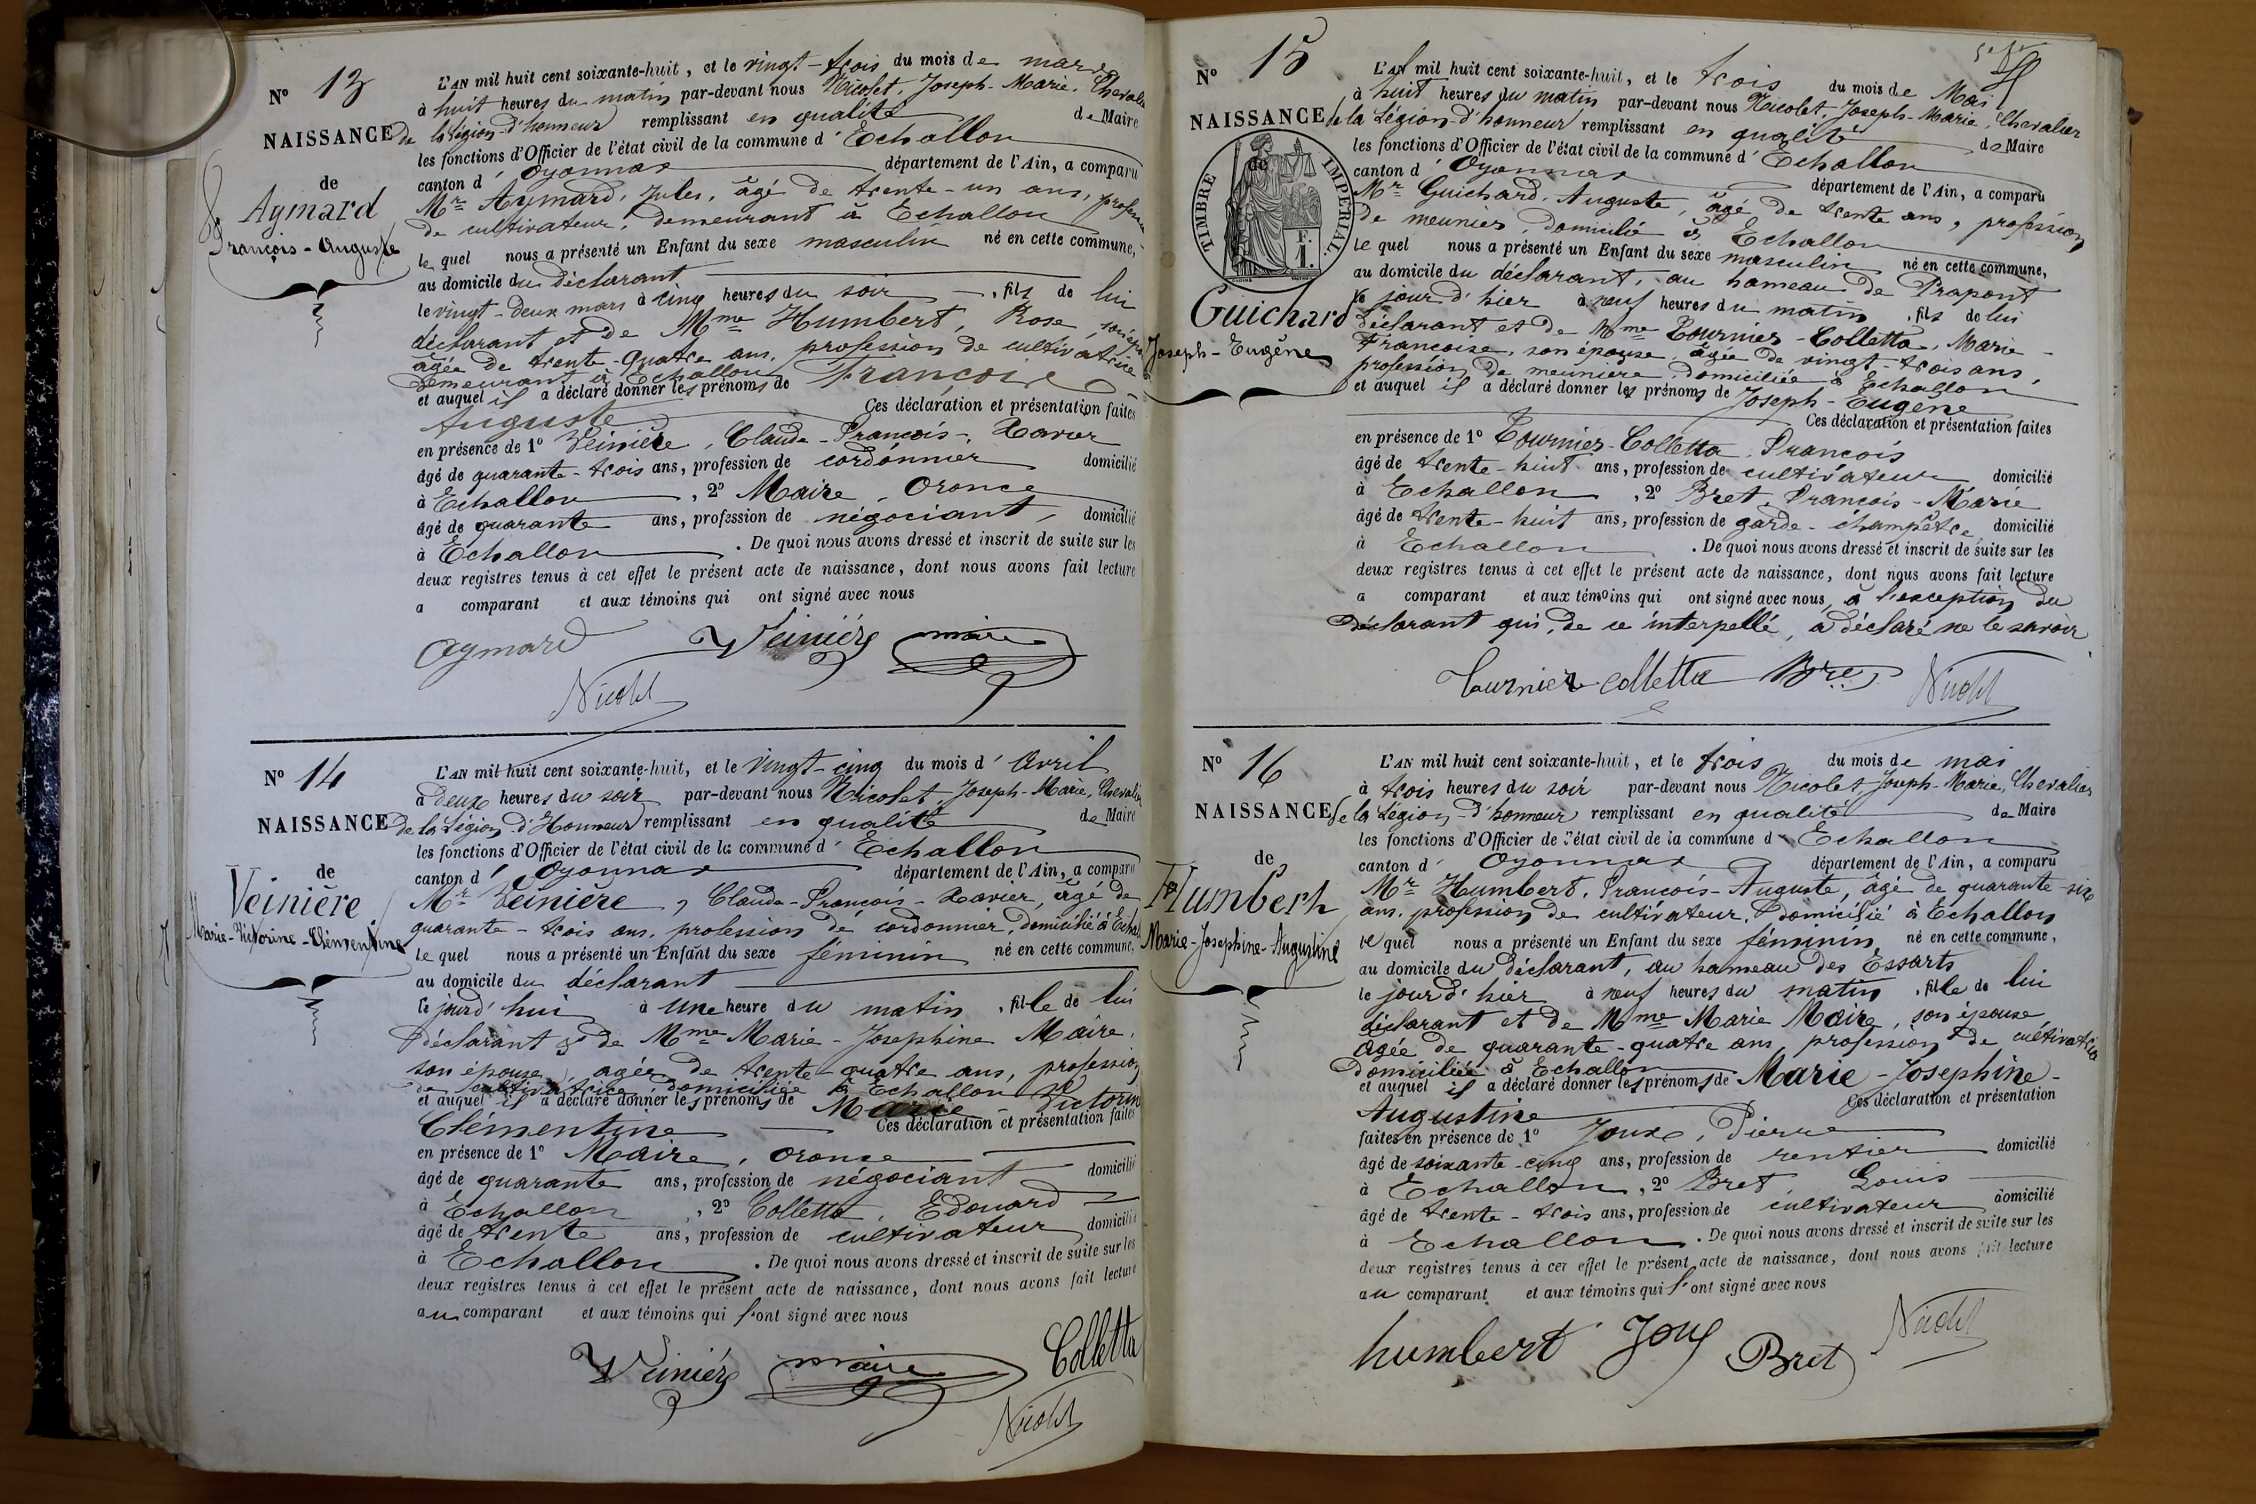 N° 13
NAISSANCE
de
Aymard
François-Auguste
L'AN mil huit cent soixante-huit, et le vingt-trois du mois de mars
à huit heures du matin par-devant nous Nicolet, Joseph-Marie, Chevalier
de la Légion-d'honneur remplissant en qualité de Maire
les fonctions d'Officier de l'état civil de la commune d' Echallon
canton d' Oyonnax département de l'Ain, a comparu
Mr Aymard, Jules, âgé de trente-un ans, profession
de cultivateur, demeurant à Echallon
lequel nous a présenté un Enfant du sexe masculin né en cette commune,
au domicile du déclarant
le vingt-deux mars à cinq heures du soir, fils de lui
déclarant et de Mme Humbert, Rose, son épouse
âgée de trente-quatre ans, profession de cultivatrice
demeurant à Echallon
et auquel il a déclaré donner les prénoms de François
Auguste Ces déclaration et présentation faites
en présence de 1° Veinière, Claude-François-Xavier
âgé de quarante-trois ans, profession de cordonnier domicilié
à Echallon, 2° Maire, Oronce
âgé de quarante ans, profession de négociant, domicilié
à Echallon. De quoi nous avons dressé et inscrit de suite sur les
deux registres tenus à cet effet le présent acte de naissance, dont nous avons fait lecture
a comparant et aux témoins qui ont signé avec nous
Aymard Veinière maire
Nicolet
N° 14
NAISSANCE
de
Veinière
Marie-Victorine-Clémentine
L'AN mil huit cent soixante-huit, et le vingt-cinq du mois d' Avril
à deux heures du soir par-devant nous Nicolet, Joseph-Marie, Chevalier
de la Légion-d'Honneur remplissant en qualité de Maire
les fonctions d'Officier de l'état civil de la commune d' Echallon
canton d' Oyonnax département de l'Ain, a comparu
Mr Veinière, Claude-François-Xavier, âgé de
quarante-trois ans, profession de cordonnier, domicilié à Echal
lequel nous a présenté un Enfant du sexe féminin né en cette commune,
au domicile du déclarant
le jourd'hui à une heure du matin, fille de lui
déclarant & de Mme Marie-Josephine Maire,
son épouse, agée de trente-quatre ans, profession
de cultivatrice, domiciliée à Echallon
et auquel il a déclaré donner les prénoms de Marie-Victorine
Clémentine Ces déclaration et présentation faites
en présence de 1° Maire, Oronce
âgé de quarante ans, profession de négociant domicilié
à Echallon, 2° Colletta, Edouard
âgé de trente ans, profession de cultivateur domicilié
à Echallon. De quoi nous avons dressé et inscrit de suite sur les
deux registres tenus à cet effet le présent acte de naissance, dont nous avons fait lecture
au comparant et aux témoins qui l'ont signé avec nous
Veinière maire Colletta
Nicolet
N° 15
NAISSANCE
de
TIMBRE IMPERIAL
F.
1.
Guichard
Joseph-Eugène
L'AN mil huit cent soixante-huit, et le trois du mois de Mai
à huit heures du matin par-devant nous Nicolet, Joseph-Marie, Chevalier
de la Légion-d'honneur remplissant en qualité de Maire
les fonctions d'Officier de l'état civil de la commune d' Echallon
canton d' Oyonnax département de l'Ain, a comparu
Mr Guichard, Auguste, âgé de trente ans, profession
de meunier, domicilié à Echallon
lequel nous a présenté un Enfant du sexe masculin né en cette commune,
au domicile du déclarant, au hameau de Prapont
le jour d'hier à neuf heures du matin, fils de lui
déclarant et de Mme Tournier-Colletta, Marie-
Françoise, son épouse, âgée de vingt-trois ans,
profession de meunière domiciliée à Echallon
et auquel il a déclaré donner les prénoms de Joseph-Eugène
Ces déclaration et présentation faites
en présence de 1° Tournier-Colletta, François
âgé de trente-huit ans, profession de cultivateur domicilié
à Echallon, 2° Bret, François-Marie
âgé de trente-huit ans, profession de garde-champêtre domicilié
à Echallon. De quoi nous avons dressé et inscrit de suite sur les
deux registres tenus à cet effet le présent acte de naissance, dont nous avons fait lecture
a comparant et aux témoins qui ont signé avec nous, à l'exception du
déclarant qui, de ce interpellé, a déclaré ne le savoir
Tournier colletta Bret Nicolet
N° 16
NAISSANCE
de
Humbert
Marie-Josephine-Augustine
L'AN mil huit cent soixante-huit, et le trois du mois de mai
à trois heures du soir par-devant nous Nicolet, Joseph-Marie, Chevalier
de la Légion-d'honneur remplissant en qualité de Maire
les fonctions d'Officier de l'état civil de la commune d Echallon
canton d' Oyonnax département de l'Ain, a comparu
Mr Humbert, François-Auguste, âgé de quarante-six
ans, profession de cultivateur, domicilié à Echallon
lequel nous a présenté un Enfant du sexe féminin né en cette commune,
au domicile du déclarant, au hameau des Essarts
le jour d'hier à neuf heures du matin, fille de lui
déclarant et de Mme Marie Maire, son épouse,
âgée de quarante-quatre ans, profession de cultivatrice
domiciliée à Echallon
et auquel il a déclaré donner les prénoms de Marie-Josephine-
Augustine Ces déclaration et présentation
faites en présence de 1° Joux, Pierre
âgé de soixante-cinq ans, profession de rentier domicilié
à Echallon, 2° Bret Louis
âgé de trente-trois ans, profession de cultivateur domicilié
à Echallon. De quoi nous avons dressé et inscrit de suite sur les
deux registres tenus à cet effet le présent acte de naissance, dont nous avons fait lecture
au comparant et aux témoins qui l'ont signé avec nous
humbert Joux Bret Nicolet